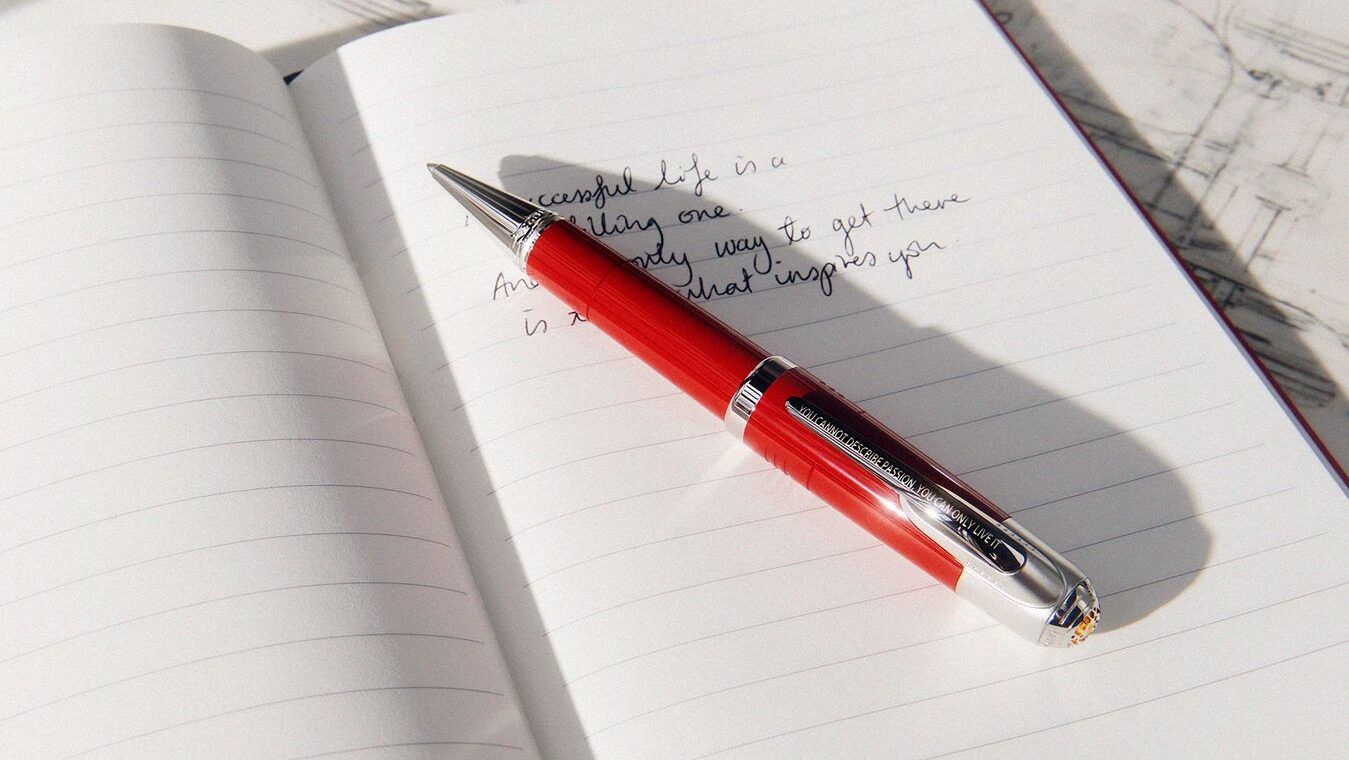 life is a
one.
only way to get there
what inspires you
is
YOU CANNOT DESCRIBE PASSION, YOU CAN ONLY LIVE IT